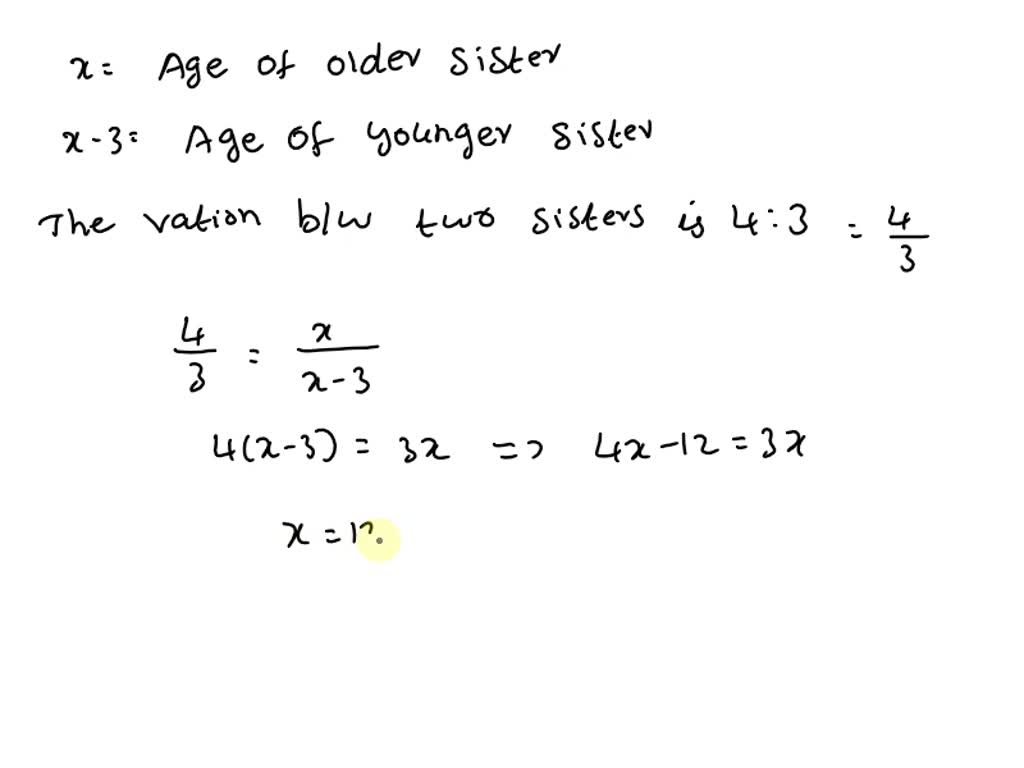 x= Age of older sister
x-3= Age of younger sister
The ration b/w two sisters is 4:3 = 4/3
4/3 = x/x-3
4(x-3) = 3x => 4x-12=3x
x =